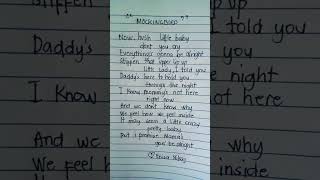 MOCKINGBIRD
Now, hush little baby
dont you cry
Everything's gonna be alright
Stiffen that upper lip up
little lady, I told you
Daddy's here to hold you
through the night
I know mommy's not here
right now
And we don't know why
We feel how we feel inside
It may seem a little crazy
pretty baby
But I promise Mama's
gon' be alright